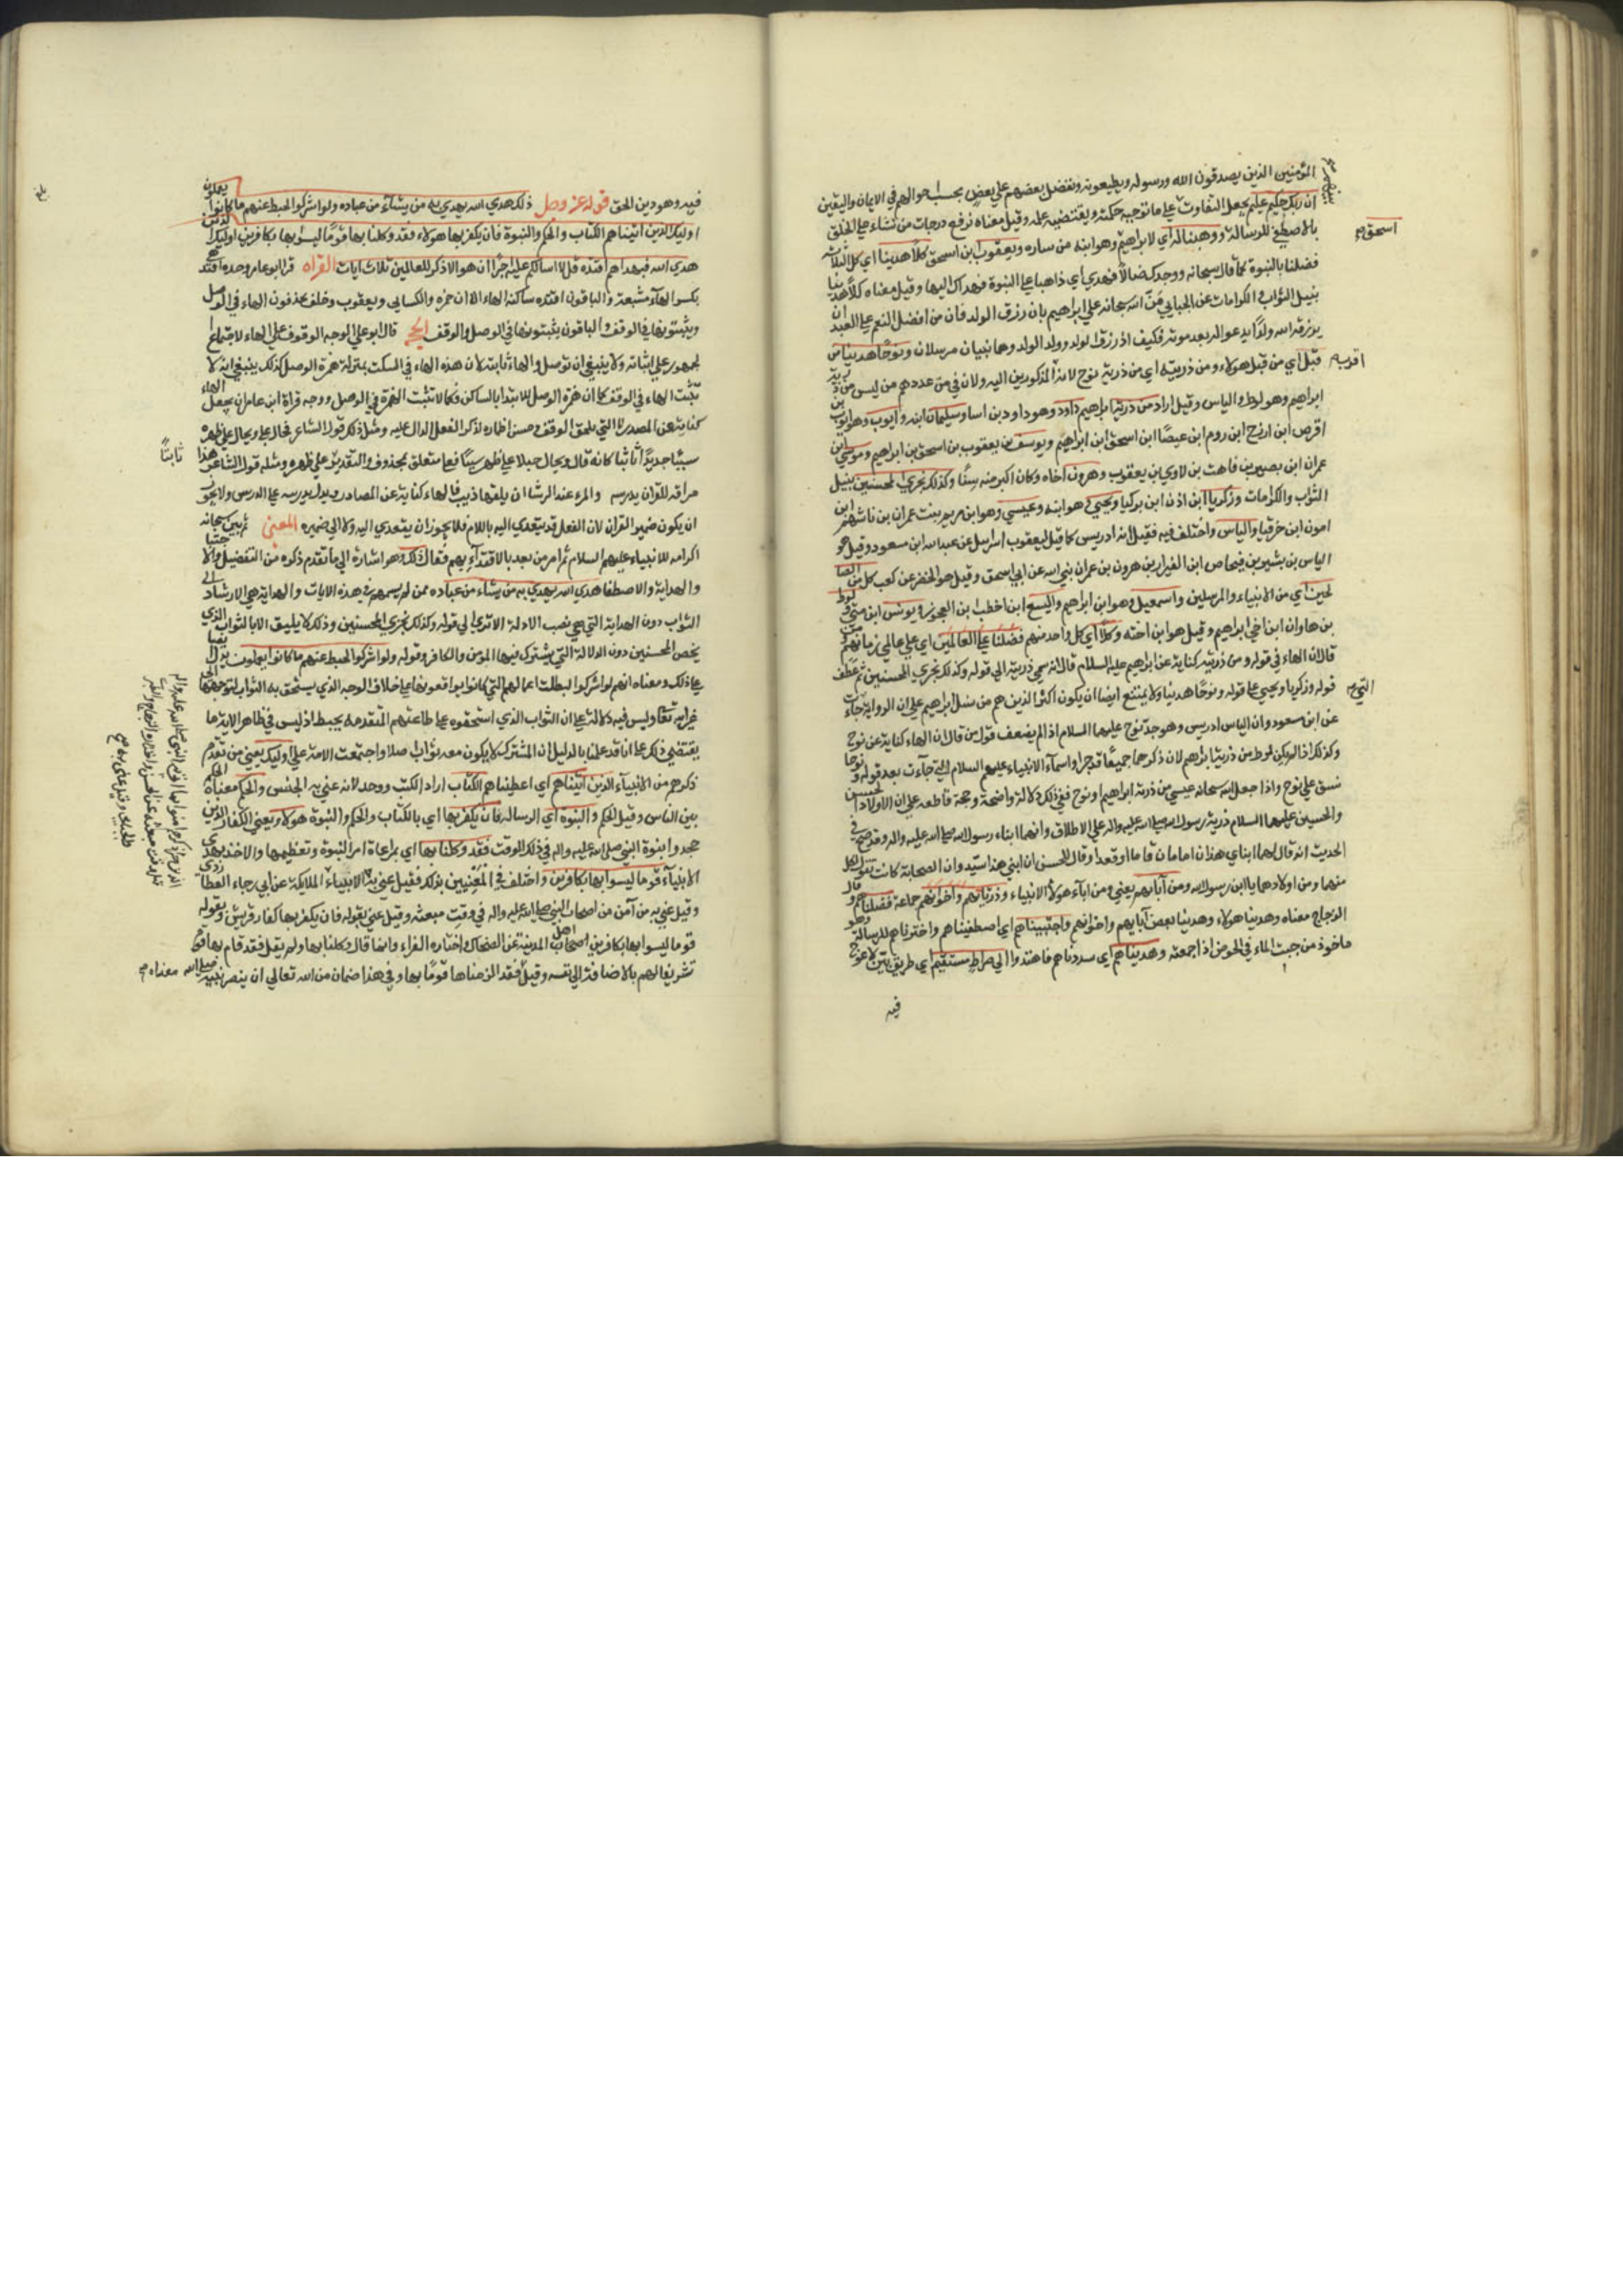 المؤمنين الذين يصدقون الله ورسوله ويطيعونه وتفضل بعضهم علي بعض بحسب احوالهم في الايمان واليقين
ان ربك حكيم عليم يجعل التفاوت علي ما توجبه حكمته ويقتضيه علمه وقيل معناه نرفع درجات من نشاء علي الخلق
بالاصطفاء للرسالة ووهبنا له اي لابراهيم وهو ابنه من ساره ويعقوب ابن اسحق كلا هدينا اي كل الثلاثة
فضلنا بالنبوة كما قال سبحانه ووجدك ضالا فهدي اي ذاهبا عن النبوة فهداك اليها وقيل معناه كلا هدينا
بنيل الثواب والكرامات عن الجبايي من الله سبحانه علي ابراهيم بان رزق الولد فان من افضل النعم علي العبد ان
يرزقه الله ولدا يدعو له بعد موته فكيف اذ رزق الولد وولد الولد وهما نبيان مرسلان ونوحا هدينا من
قبل اي من قبل هولاء ومن ذريته اي من ذرية نوح لانه المذكورين اليه ولان في من عددهم من ليس من ذرية
ابراهيم وهو لوط والياس وقيل اراد من ذرية ابراهيم داود وهو داود بن اسا وسليمان ابنه وايوب وهو ايوب بن
اقرص ابن ارزح ابن روم ابن عيصا ابن اسحق ابن ابراهيم ويوسف بن يعقوب بن اسحق بن ابراهيم وموسي ابن
عمران ابن يصهر بن قاهث بن لاوي بن يعقوب وهرون اخاه وكان اكبر منه سنا وكذلك نجزي المحسنين بنيل
الثواب والكرامات وزكريا ابن اذن ابن بركيا ويحيي هو ابنه وعيسي وهو ابن مريم بنت عمران بن ناشهم ابن
امون ابن حزقيا والياس واختلف فيه فقيل انه ادريس كما قيل ليعقوب اسرايل عن عبدالله ابن مسعود وقيل هو
الياس بن بشير بن فنحاص ابن العيزار بن هرون بن عمران نبي الله عن ابي اسحق وقيل هو الخضر عن كعب كل من الصا
لحين اي من الانبياء والمرسلين واسمعيل وهو ابن ابراهيم واليسع ابن اخطب بن العجوز ويونس ابن متي ولوط
بن هاران ابن اخي ابراهيم وقيل هو ابن اخته وكلا اي كل واحد منهم فضلنا علي العالمين اي علي عالمي زمانهم
قال ان الهاء في قوله ومن ذريته كناية عن ابراهيم عليه السلام قال انه سمي ذريته الي قوله وكذلك نجزي المحسنين ثم عطف
قوله وزكريا ويحيي علي قوله ونوحا هدينا ولا يمتنع ايضا ان يكون اكثر الذين هم من نسل ابراهيم علي ان الرواية جاءت
عن ابن مسعود وان الياس ادريس وهو جد نوح عليهما السلام اذا لم يضعف قول من قال ان الهاء كناية عن نوح
وكذلك اذا لم يكن لوط من ذرية ابراهيم لان ذكرهما جميعا قد جرا واسماء الانبياء عليهم السلام التي جاءت بعد قوله ونوحا
نسق علي نوح واذا جعل الله سبحانه عيسي من ذرية ابراهيم او نوح ففي ذلك دلالة واضحة وحجة قاطعه علي ان الاولاد الحسن
والحسين عليهما السلام ذرية رسول الله صلي الله عليه واله علي الاطلاق وانهما ابناء رسول الله صلي الله عليه واله وقد صح في
الحديث انه قال لهما ابناي هذان امامان قاما او قعدا وقال للحسن ان ابني هذا سيد وان الصحابة كانت تقول لكل
منهما ومن اولادهما يا ابن رسول الله ومن آبائهم يعني ومن اباء هولاء الانبياء وذرياتهم واخوانهم جماعة فضلناهم وقال
الزجاج معناه وهدينا هولاء وهدينا بعض آبايهم واخوانهم واجتبيناهم اي اصطفيناهم واخترناهم للرسالة وهو
ماخوذ من جبيت الماء في الحوض اذا جمعته وهديناهم اي سددناهم فاهتدوا الي صراط مستقيم اي طريق بين لا عوج
فيه
اسحق
التي
فيه وهو دين الحق قوله عز وجل ذلك هدي الله يهدي به من يشآء من عباده ولو اشركوا لحبط عنهم ما كانوا يعملون
اوليك الذين اتيناهم الكتاب والحكم والنبوة فان يكفر بها هولاء فقد وكلنا بها قوما ليسوا بها بكافرين اوليك الذين
هدي الله فبهداهم اقتده قل لا اسالكم عليه اجرا ان هو الا ذكر للعالمين ثلاث ايات القراه قرا ابو عامر وحده اقتده
بكسر الهاء مشبعة والباقون اقتده ساكنة الهاء الا ان حمزه والكسايي ويعقوب وخلف يحذفون الهاء في الوصل
ويثبتونها في الوقف والباقون يثبتونها في الوصل والوقف الحجه قال ابو علي الوجه الوقوف علي الهاء لاجتماع
الجمهور علي اثباته ولا ينبغي ان توصل والهاء ثابتة لان هذه الهاء في السكت بمنزلة همزة الوصل كذلك ينبغي ان لا
تثبت الهاء في الوقف كما ان همزة الوصل للابتدا بالساكن فكما لا تثبت الهمزة في الوصل ووجه قراة ابن عامر ان يجعل الهاء
كناية عن المصدر لا التي تلحق الوقف وحسن اظماره لذكر الفعل الدال عليه ومثل ذلك قول الشاعر فجال علي وحشيه
ثابتا
مراقه للقران يدرسه والمرء عند الرشا ان يلقها ذيب فالهاء كناية عن المصادر ويدل يدرسه علي الدرس ولا يجوز
ان يكون ضمير القران لان الفعل قد تعدي اليه باللام فلا يجوز ان يتعدي اليه ولا الي ضميره المعني ثم بين سبحانه
اكرامه للانبياء عليهم السلام ثم امر من بعد بالاقتداء بهم فقال ذلك وهو اشارة الي ما تقدم ذكره من التفضيل والاجتبا
والهداية والاصطفا هدي الله يهدي به من يشاء من عباده ممن لم يسمهم في هذه الايات والهداية هي الارشاد الي
الثواب دون الهداية التي هي نصب الادلة الا تري الي قوله وكذلك نجزي المحسنين وذلك لا يليق الا بالثواب الذي
يخص المحسنين دون الدلالة التي يشترك فيها المؤمن والكافر وقوله ولو اشركوا لحبط عنهم ما كانوا يعملون
علي ذلك ومعناه انهم لو اشركوا لبطلت اعمالهم التي كانوا يواقعونها علي خلاف الوجه الذي يستحق به الثواب لتوجهها الي
غير الله تعالي وليس فيه دلالة علي ان الثواب الذي استحقوه علي طاعتهم المتقدمه يحبط اذ ليس في ظاهر الاية ما
يقتضي ذلك علي انا قد علمنا بالدليل ان المشرك لا يكون معه ثواب اصلا واجتمعت الامة علي اوليك يعني من تقدم
ذكرهم من الانبياء الذين آتيناهم اي اعطيناهم الكتاب اراد الكتب ووحد لانه عني به الجنس والحكم معناه الحكم
بين الناس وقيل الحكم والنبوة اي الرسالة فان يكفر بها اي بالكتاب والحكم والنبوة هولاء يعني الكفار الذين
جحدوا بنبوة النبي صلي الله عليه واله في ذلك الوقت فقد وكلنا بها اي بمراعاة امر النبوة وتعظيمها والاخذ بهدي
الانبياء قوما ليسوا بها بكافرين واختلف في المعنيين بذلك فقيل عني به الانبياء الملايكة عن ابي رجاء العطاردي
وقيل عني به من آمن من اصحاب النبي صلي الله عليه واله في وقت مبعثه وقيل عني بقوله فان يكفر بها كفار قريش وبقوله
قوما ليسوا بها بكافرين اهل المدينة عن الضحاك واختاره الفراء وانما قال وكلنا بها ولم يقل فقد قام بها قوم
تشريفا لهم بالاضافة الي نفسه وقيل فقد الزمناها قوما بها وفي هذا ضمان من الله تعالي ان ينصر نبيه صلي الله معناه